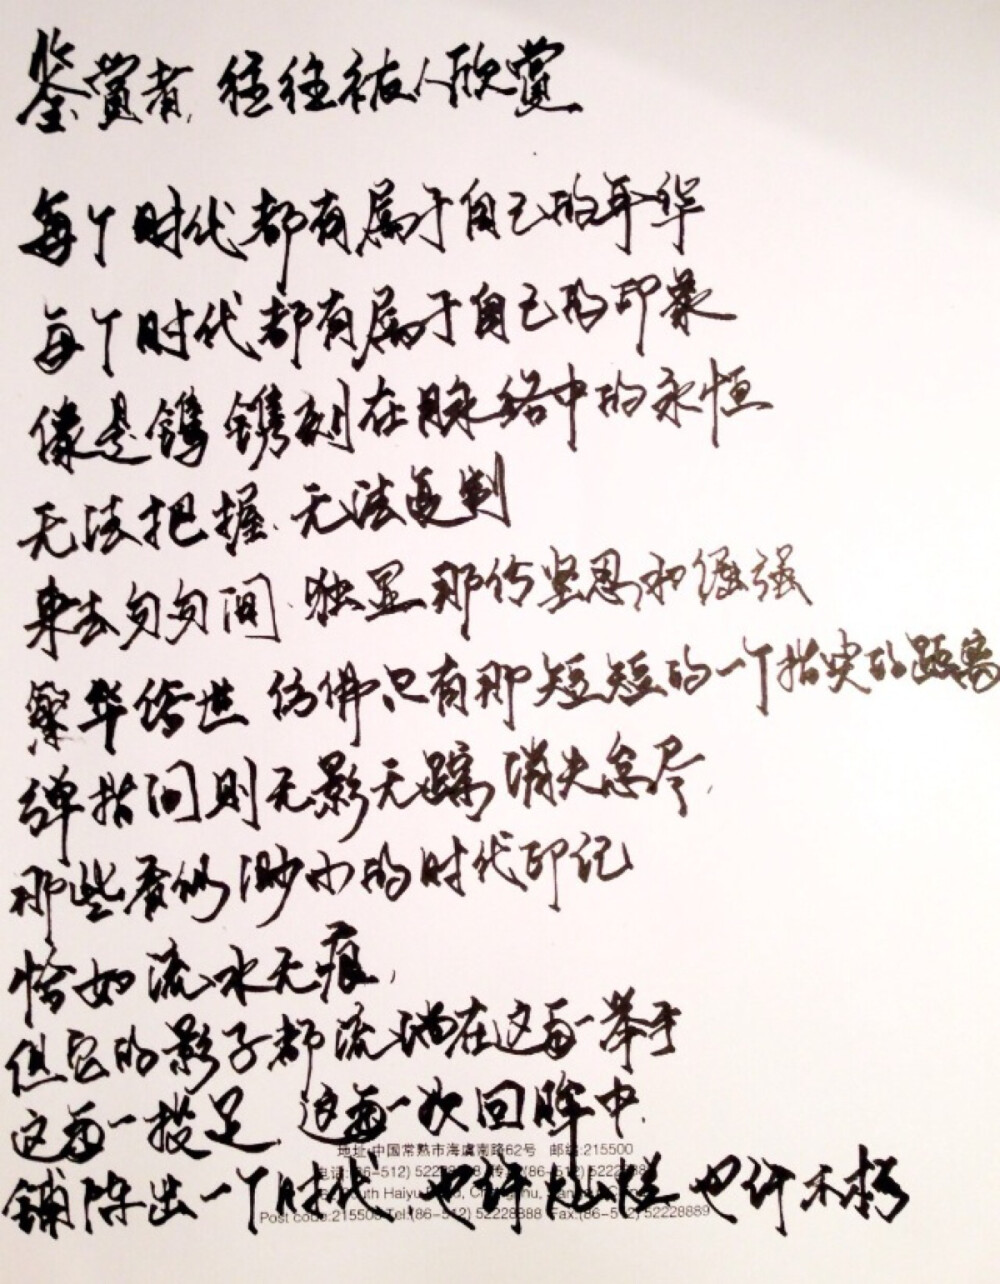 鉴赏者,往往被人欣赏
每个时代都有属于自己的年华
每个时代都有属于自己的印象
像是镌镌刻在脉络中的永恒
无法把握、无法复制
来去匆匆间、独显那份坚忍和倔强
繁华俗世 仿佛只有那短短的一个指尖的距离
弹指间则无影无踪 消失怠尽,
那些看似渺小的时代印记
恰如流水无痕,
但它的影子都流淌在这每一举手
这每一投足、这每一次回眸中
地址:中国常熟市海虞南路62号 邮编:215500
铺陈出一个时代,也许灿烂 也许不朽
Post code:215500 Tel:(86-512) 52228888 Fax:(86-512) 52228889